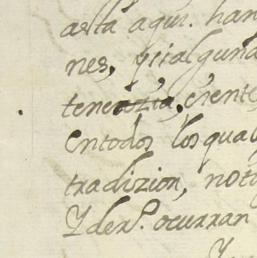 asta aqui. han
nes, y si alguna
tenenzia, ciente
entodos los qual
tradizion, noti
Y der.º ocurran